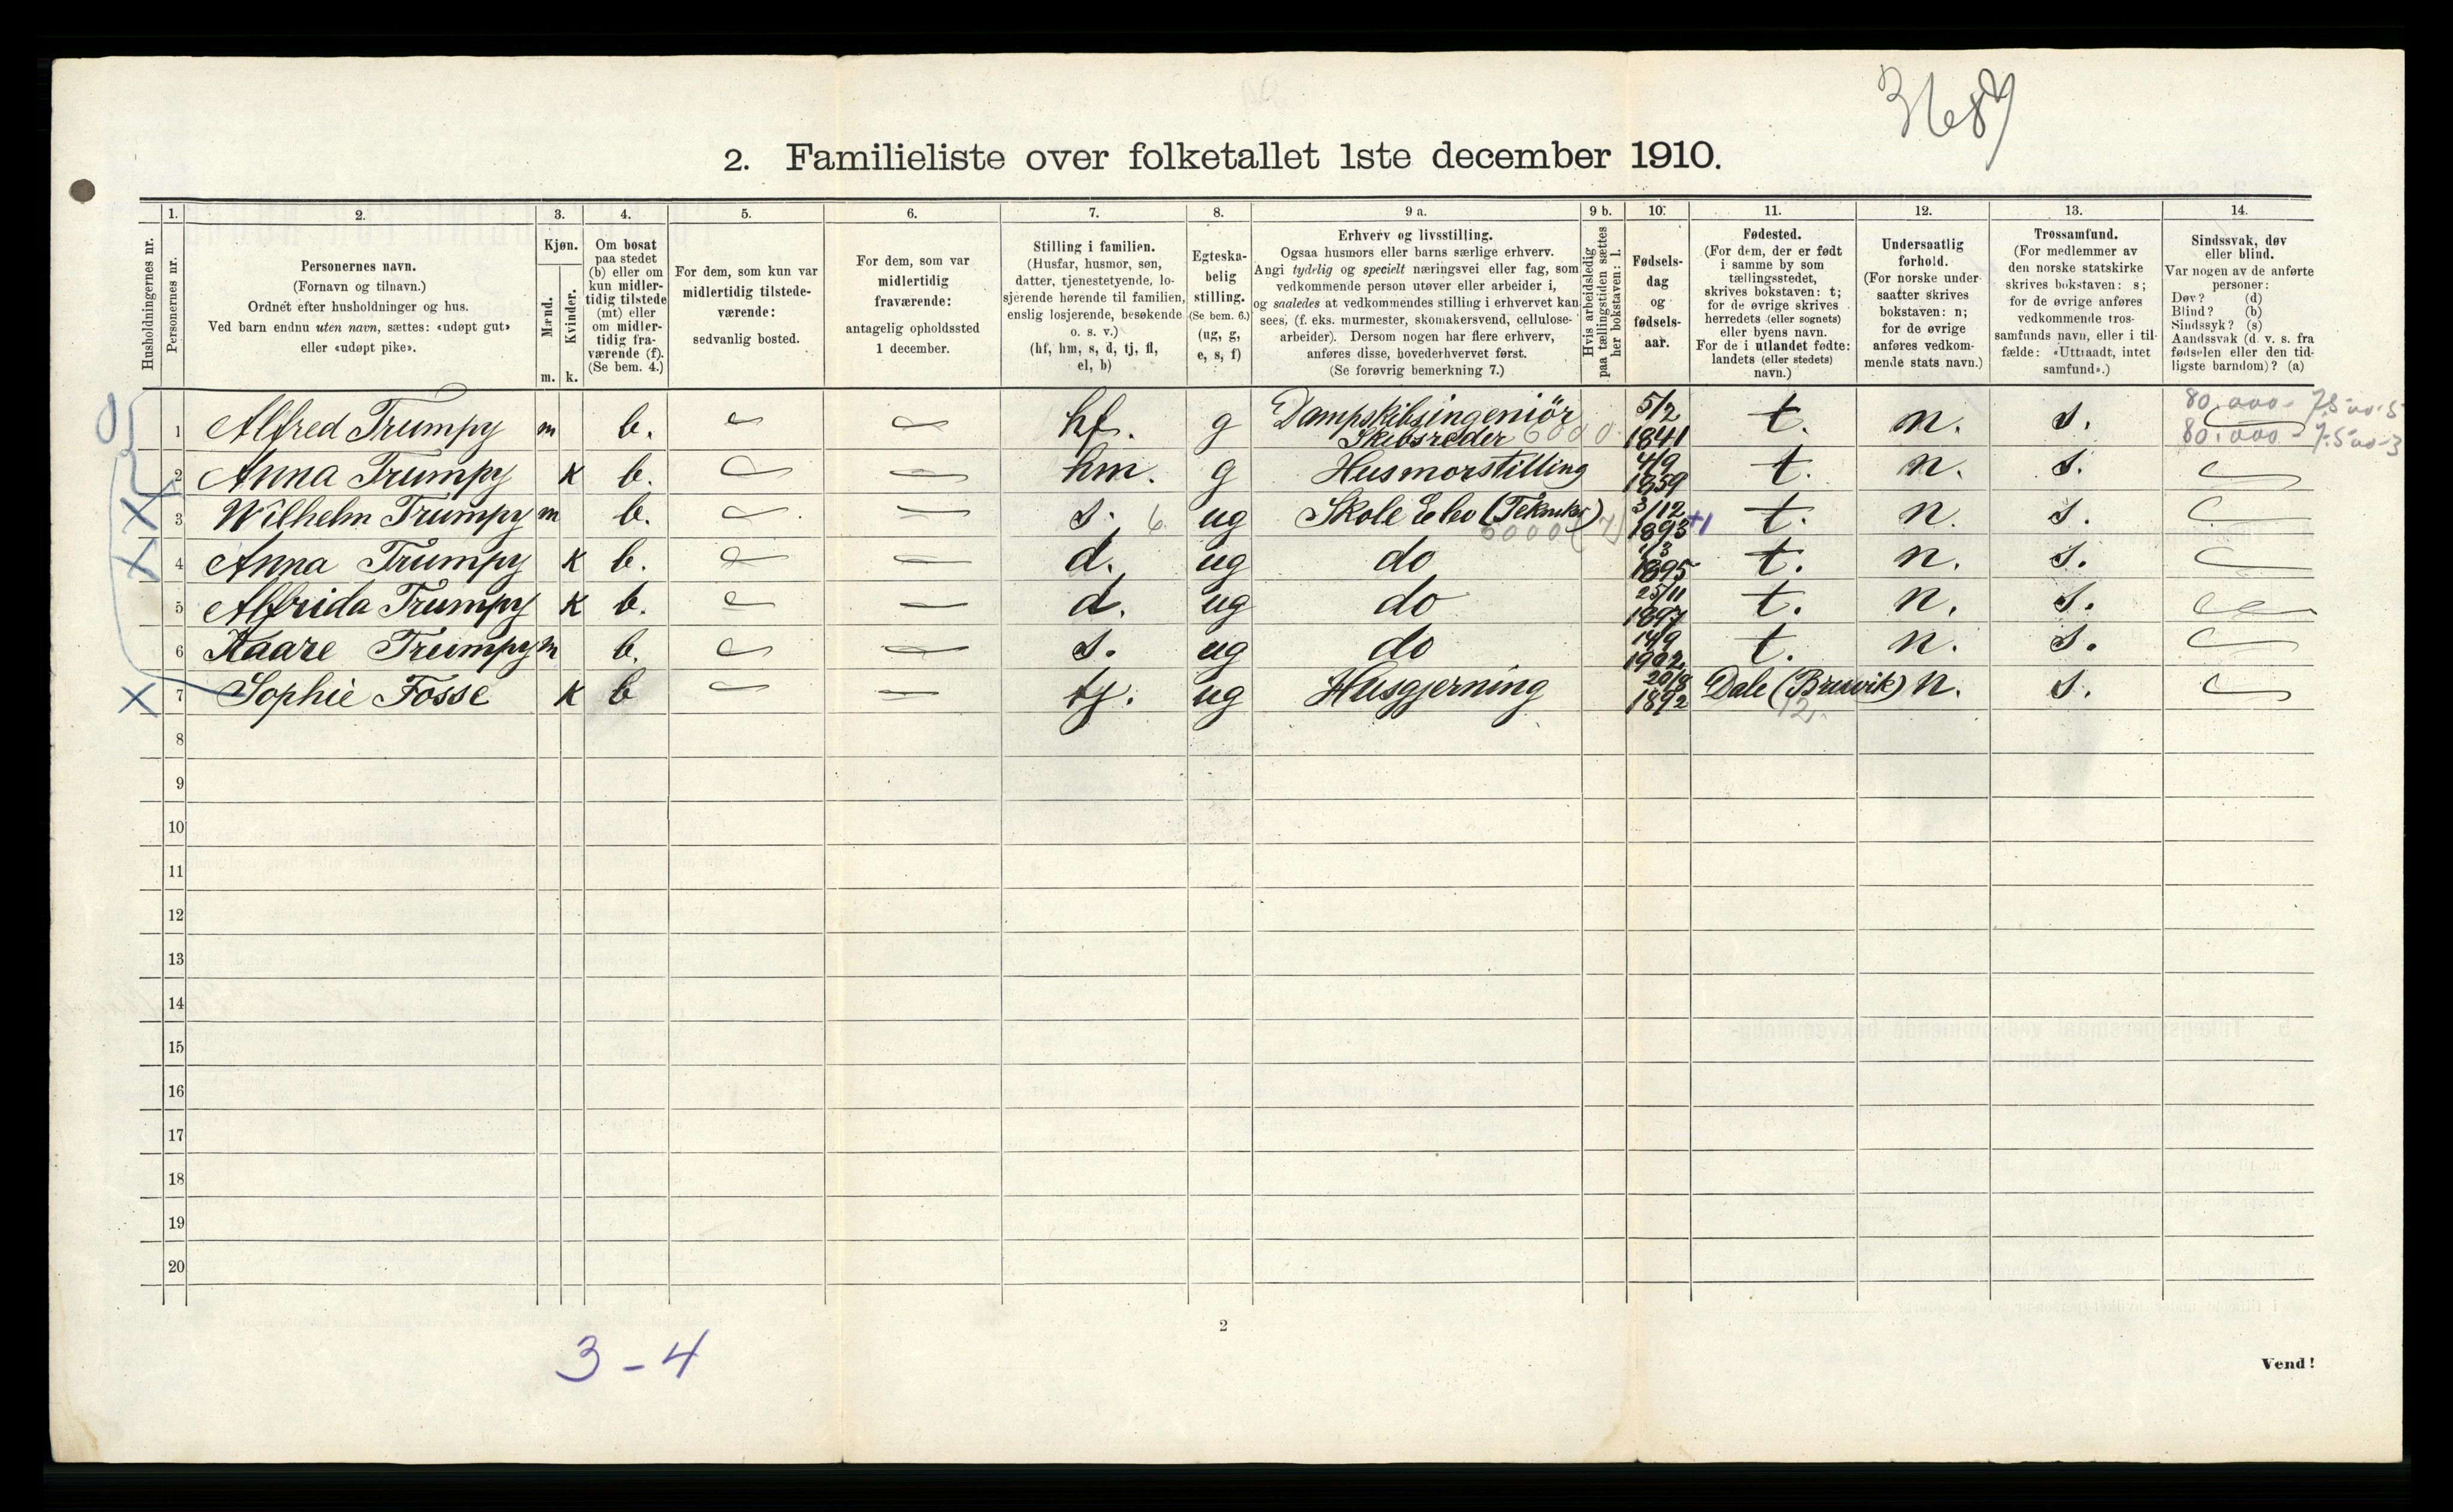 3689
2. Familieliste over folketallet 1ste december 1910.
1. 2. 3. 4. 5. 6. 7. 8. 9 a. 9 b. 10. 11. 12. 13. 14.
Husholdningernes nr.
Personernes nr.
Personernes navn.
(Fornavn og tilnavn.)
Ordnet efter husholdninger og hus.
Ved barn endnu uten navn, sættes: «udøpt gut»
eller «udøpt pike».
Kjøn.
Mænd.
Kvinder.
m. k.
Om bosat
paa stedet
(b) eller om
kun midler-
tidig tilstede
(mt) eller
om midler-
tidig fra-
værende (f).
(Se bem. 4.)
For dem, som kun var
midlertidig tilstede-
værende:
sedvanlig bosted.
For dem, som var
midlertidig
fraværende:
antagelig opholdssted
1 december.
Stilling i familien.
(Husfar, husmor, søn,
datter, tjenestetyende, lo-
sjerende hørende til familien,
enslig losjerende, besøkende
o. s. v.)
(hf, hm, s, d, tj, fl,
el, b)
Egteska-
belig
stilling.
(Se bem. 6.)
(ug, g,
e, s, f)
Erhverv og livsstilling.
Ogsaa husmors eller barns særlige erhverv.
Angi tydelig og specielt næringsvei eller fag, som
vedkommende person utøver eller arbeider i,
og saaledes at vedkommendes stilling i erhvervet kan
sees, (f. eks. murmester, skomakersvend, cellulose-
arbeider). Dersom nogen har flere erhverv,
anføres disse, hovederhvervet først.
(Se forøvrig bemerkning 7.)
Hvis arbeidsledig
paa tællingstiden sættes
her bokstaven: l.
Fødsels-
dag
og
fødsels-
aar.
Fødested.
(For dem, der er født
i samme by som
tællingsstedet,
skrives bokstaven: t;
for de øvrige skrives
herredets (eller sognets)
eller byens navn.
For de i utlandet fødte:
landets (eller stedets)
navn.)
Undersaatlig
forhold.
(For norske under-
saatter skrives
bokstaven: n;
for de øvrige
anføres vedkom-
mende stats navn.)
Trossamfund.
(For medlemmer av
den norske statskirke
skrives bokstaven: s;
for de øvrige anføres
vedkommende tros-
samfunds navn, eller i til-
fælde: «Uttraadt, intet
samfund».)
Sindssvak, døv
eller blind.
Var nogen av de anførte
personer:
Døv? (d)
Blind? (b)
Sindssyk? (s)
Aandssvak (d. v. s. fra
fødselen eller den tid-
ligste barndom)? (a)
1 Alfred Trumpy m b. hf. g Dampskibsingeniör Skibsreder 6000 5/2 1841 t. n. s.
2 Anna Trumpy k b. hm. g Husmorstilling 4/9 1859 t. n. s.
3 Wilhelm Trumpy m b. s. 6 ug Skole Elev (Tekniker) 6000 (7) 3/12 1893 +1 t. n. s.
4 Anna Trumpy k b. d. ug do 1/3 1895 t. n. s.
5 Alfrida Trumpy k b. d. ug do 25/11 1897 t. n. s.
6 Kaare Trumpy m b. s. ug do 14/9 1902 t. n. s.
7 Sophie Fosse k b tj. ug Husgjerning 20/8 1892 Dale (Bruvik) 12 n. s.
8
9
10
11
12
13
14
15
16
17
18
19
20
3-4
2
Vend!